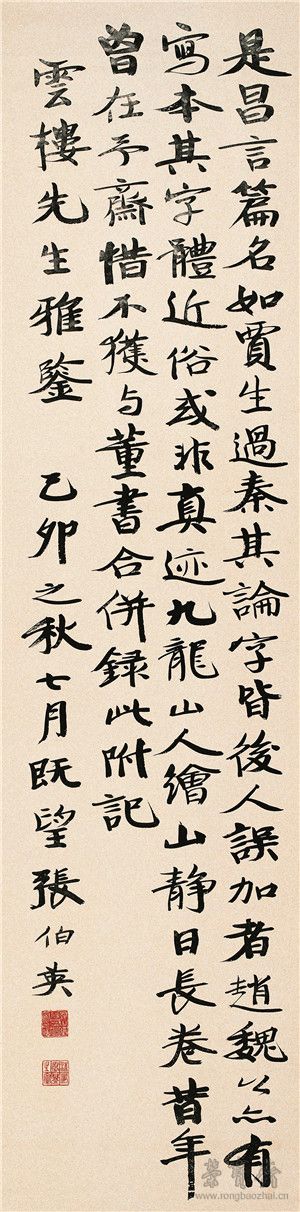 是昌言篇名如賈生過秦其論字皆後人誤加者趙魏公亦有
寫本其字體近俗或非真迹九龍山人繪山静日長卷昔年
曾在予齋惜不獲与董書合併錄此附記
雲樓先生雅鑒 己卯之秋七月既望張伯英
榮寶齋
www.rongbaozhai.cn